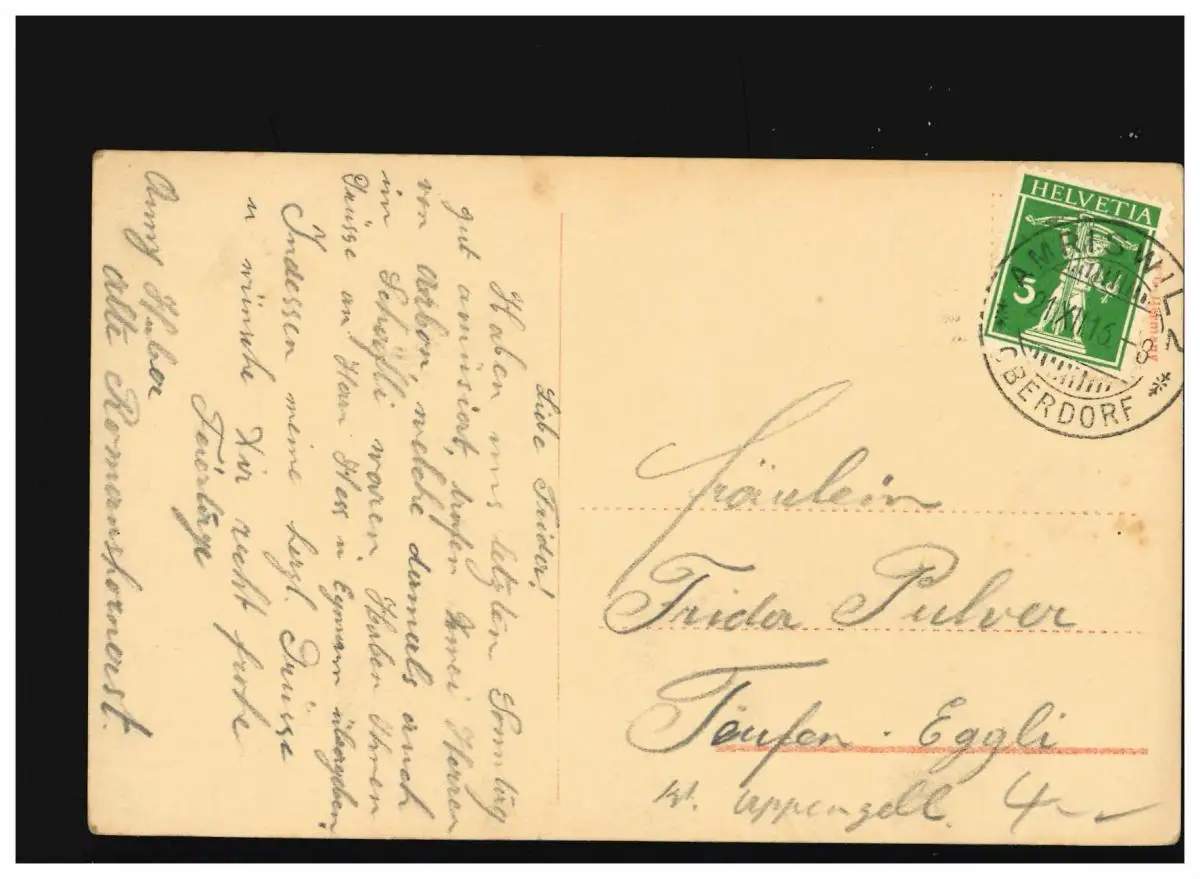 Liebe Frida!
Haben uns letzten Sonntag
gut amüsiert, trafen Zwei Herren
von Arbon welche damals auch
im Schäfli waren Haben Ihnen
Grüsse an Herrn Hess u Egmann übergeben.
Indessen meine hezl. Grüsse
u wünsche Dir recht frohe
Feiertage
Anny Huber
alte Romanshornerst.
HELVETIA
5
AMRISWIL
21.XII.15-8
OBERDORF
Germany
Fräulein
Frida Pulver
Teufen. Eggli
Kt. Appenzell.